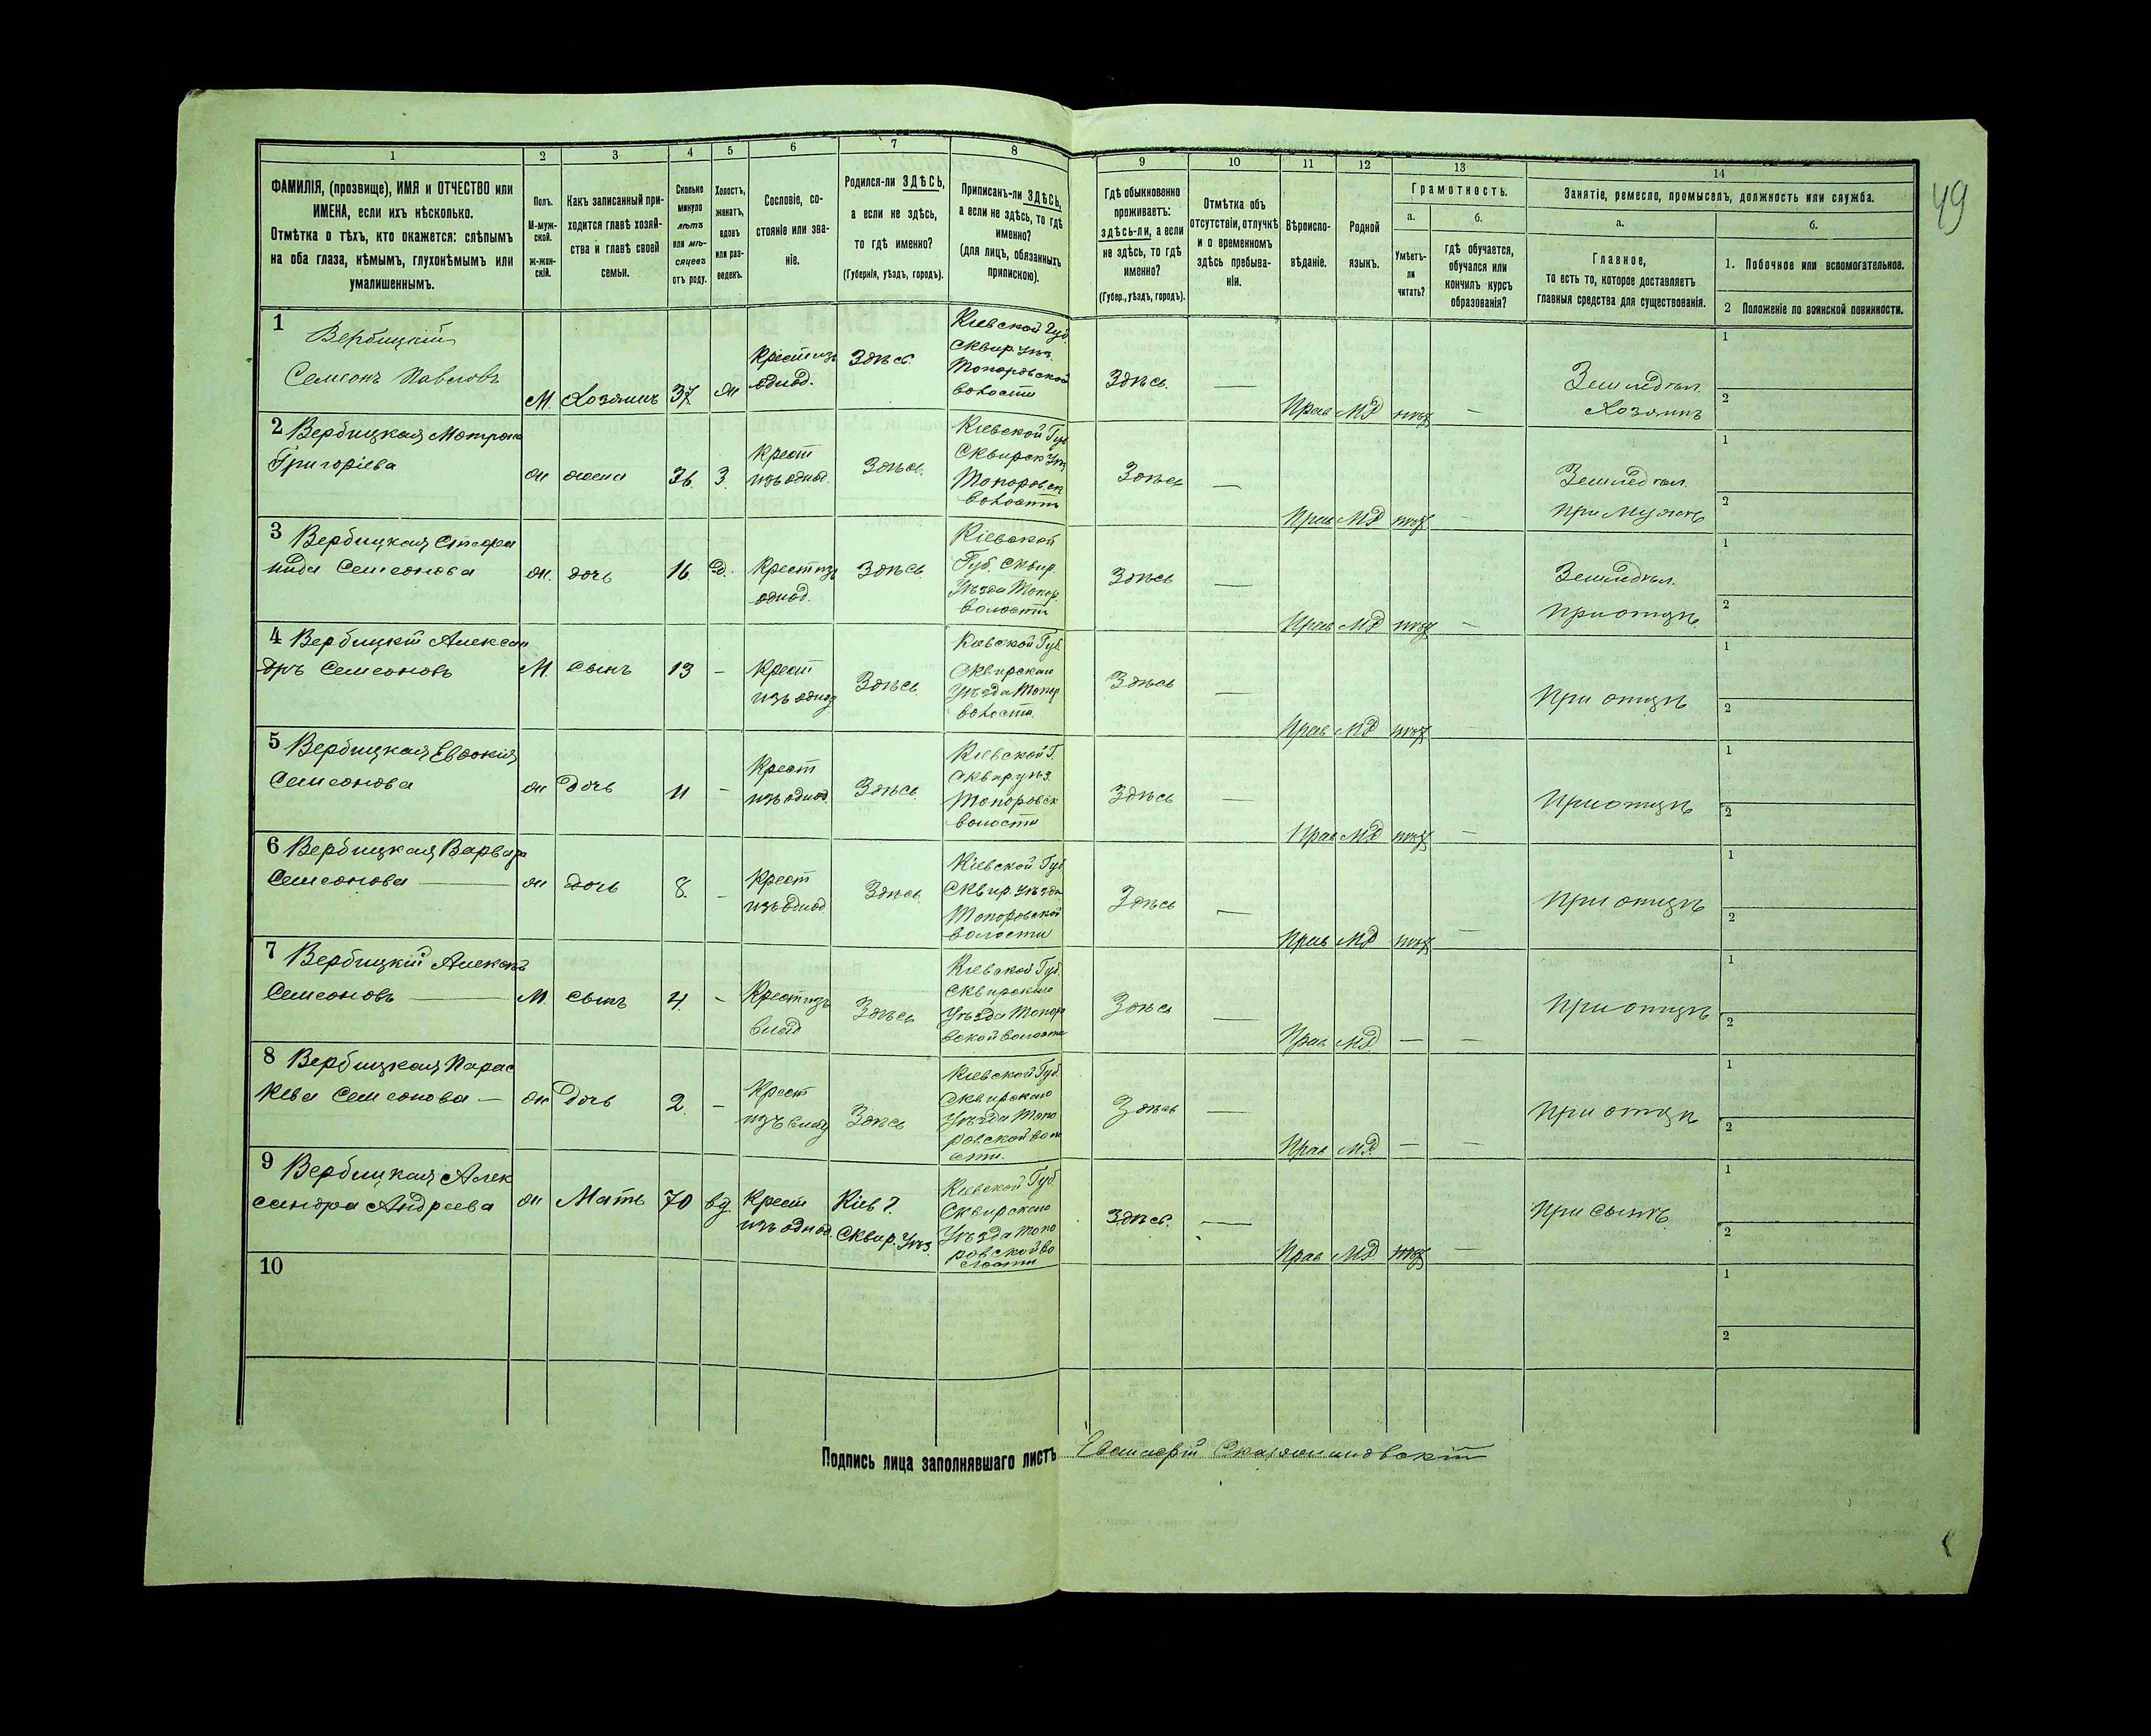 49
1 2 3 4 5 6 7 8 9 10 11 12 13 14
ФАМИЛІЯ, (прозвище), ИМЯ и ОТЧЕСТВО или
ИМЕНА, если ихъ нѣсколько.
Отмѣтка о тѣхъ, кто окажется: слѣпымъ
на оба глаза, нѣмымъ, глухонѣмымъ или
умалишеннымъ.
Полъ.
М-муж-
ской.
Ж-жен-
скій.
Какъ записанный при-
ходится главѣ хозяй-
ства и главѣ своей
семьи.
Сколько
минуло
лѣтъ
или мѣ-
сяцевъ
отъ роду.
Холостъ,
женатъ,
вдовъ
или раз-
веденъ.
Сословіе, со-
стояніе или зва-
ніе.
Родился-ли ЗДѢСЬ,
а если не здѣсь,
то гдѣ именно?
(Губернія, уѣздъ, городъ).
Приписанъ-ли ЗДѢСЬ,
а если не здѣсь, то гдѣ
именно?
(для лицъ, обязанныхъ
припискою).
Гдѣ обыкновенно
проживаетъ:
здѣсь-ли, а если
не здѣсь, то гдѣ
именно?
(Губер., уѣздъ, городъ).
Отмѣтка объ
отсутствіи, отлучкѣ
и о временномъ
здѣсь пребыва-
ніи.
Вѣроиспо-
вѣданіе.
Родной
языкъ.
Грамотность.
а.
Умѣетъ-
ли
читать?
б.
гдѣ обучается,
обучался или
кончилъ курсъ
образованія?
Занятіе, ремесло, промыселъ, должность или служба.
а.
Главное,
то есть то, которое доставляетъ
главныя средства для существованія.
б.
1. Побочное или вспомогательное.
2 Положеніе по воинской повинности.
1 Вербицкій
Семеонъ Павловъ
М. Хозяинъ 37 ж
Крест изъ
однод.
Здѣсь
Кіевской Губ.
Сквир. уѣз.
Топоровской
волости
Здѣсь —
Прав МР нѣт —
Земледѣл.
Хозяинъ
1
2
2 Вербицкая Матрона
Григорієва
ж жена 36 З.
Крест
изъ однод.
Здѣсь
Кіевской Губ
Сквирск Уѣз
Топоровск
волости
Здѣсь —
Прав МР нѣт —
Земледѣл.
При мужѣ
1
2
3 Вербицкая Стефа
нида Семеонова
ж. дочь 16 Д.
Крест изъ
однод.
Здѣсь
Кіевской
Губ. Сквир.
Уѣзда Топор.
волости
Здѣсь —
Прав МР нѣт —
Земледѣл.
При отцѣ
1
2
4 Вербицкій Алексан
дръ Семеоновъ
М. сынъ 13 —
Крест
изъ однод
Здѣсь
Кіевской Губ
Сквирскаго
Уѣзда Топор
волости.
Здѣсь —
Прав МР нѣт —
При отцѣ
1
2
5 Вербицкая Евдокія
Семеонова
ж Дочь 11 —
Крест
изъ однод.
Здѣсь
Кіевской Г.
Сквир. уѣз.
Топоровск
волости
Здѣсь —
Прав МР нѣт —
При отцѣ
1
2
6 Вербицкая Варвара
Семеонова —
ж дочь 8. —
Крест
изъ однод
Здѣсь
Кіевской Губ
Сквир. уѣзда
Топоровской
волости
Здѣсь —
Прав МР нѣт —
При отцѣ
1
2
7 Вербицкій
Семеоновъ —
М. сынъ 4. —
Крест изъ
Здѣсь
Кіевской Губ.
Сквирскаго
Уѣзда Топоро
вской волости
Здѣсь —
Прав МР. — —
При отцѣ
1
2
8 Вербицкая Парас
кева Семеонова —
ж Дочь 2. —
Крест
Здѣсь
Кіевской Губ.
Сквирскаго
Уѣзда Топо
ровской вол
ости.
Здѣсь —
Прав МР. — —
При отцѣ
1
2
9 Вербицкая Алек
сандра Андреева
ж Мать 70 вд.
Крест
изъ однод.
Кіев Г.
Сквир. Уѣз.
Кіевской Губ.
Сквирскаго
Уѣзда Топо
ровской во
лости
Здѣсь. —
Прав МР. нѣт —
При сынѣ
1
2
10
1
2
Подпись лица заполнявшаго листъ